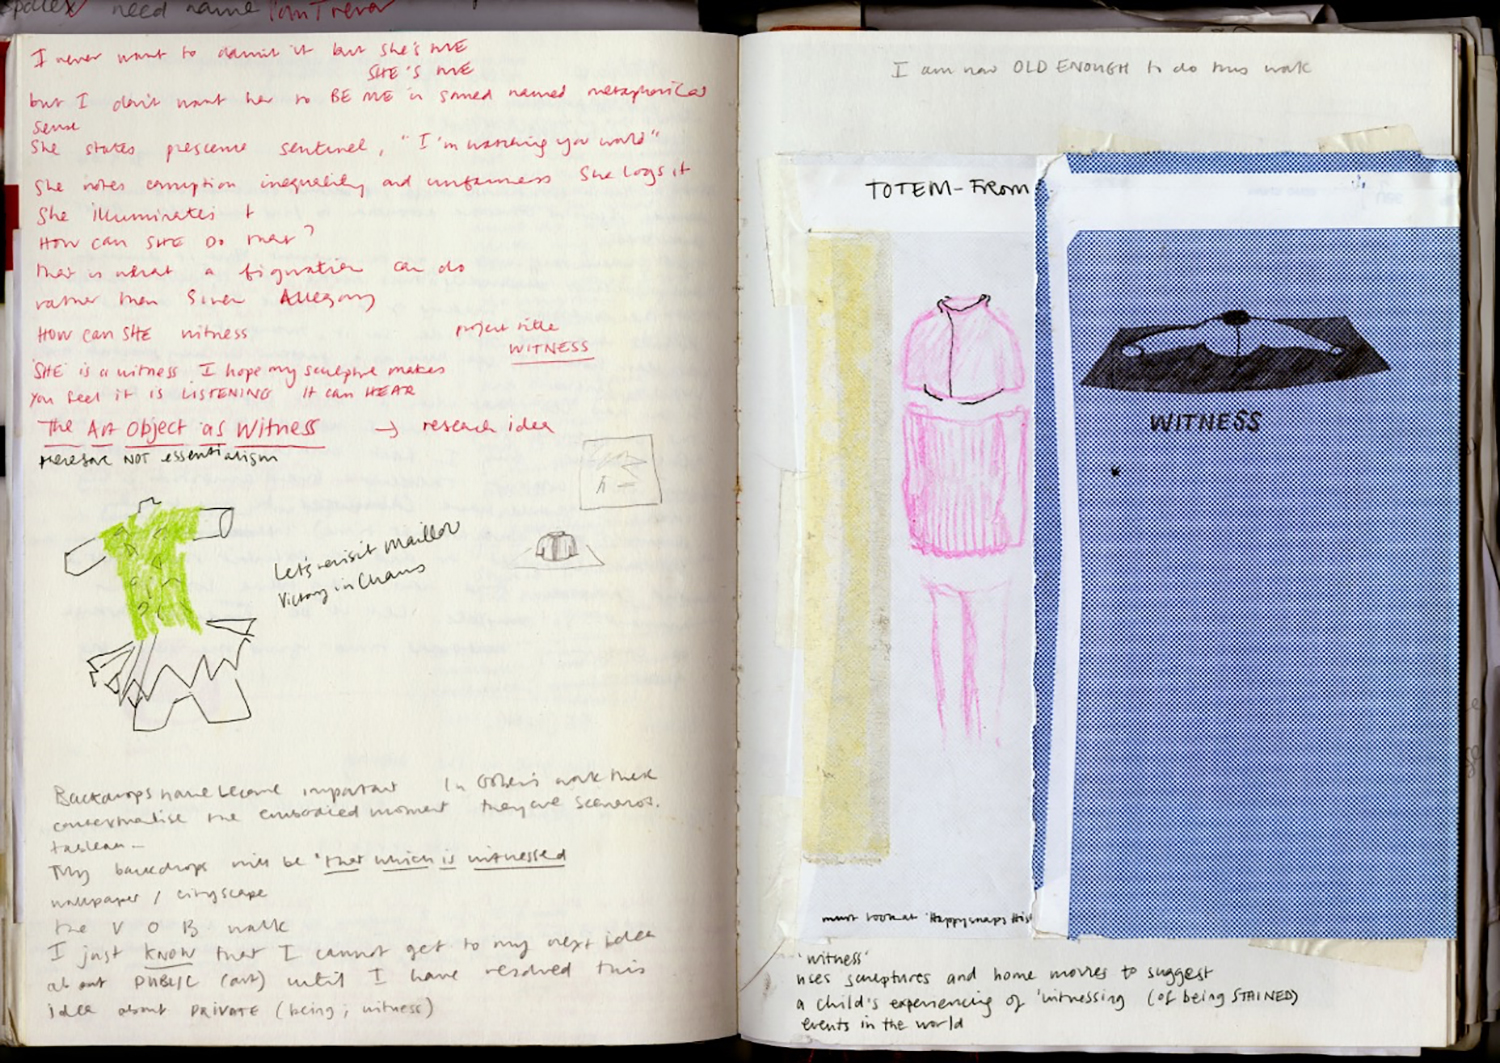 need name
I never want to damit it but she's ME
SHE'S ME
but I don't want her to BE ME in samed named metaphorical
sense
She states prescence sentinel, "I'm watching you world"
She notes corruption inequality and unfairness She logs it
She illuminates it
How can SHE DO that?
that is what a figuration can do
rather than Allegory
How can SHE witness
project title
WITNESS
'SHE is a witness I hope my sculpture makes
you feel it is LISTENING It can HEAR
The Art Object as Witness → research idea
therefore NOT essentialism
Let's revisit Maillol
Victory in Chains
Backdrops have become important In work these
contextualise the embodied moment they are scenarios.
tableau –
My backdrops will be 'that which is witnessed
wallpaper / cityscape
the V O B walk
I just KNOW that I cannot get to my next idea
about PUBLIC (art) until I have resolved this
idea about PRIVATE (being; witness)
I am now OLD ENOUGH to do this work
TOTEM - FROM
WITNESS
must look at 'Happysnaps
'witness'
uses sculptures and home movies to suggest
a child's experiencing of 'witnessing (of being STAINED)
events in the world